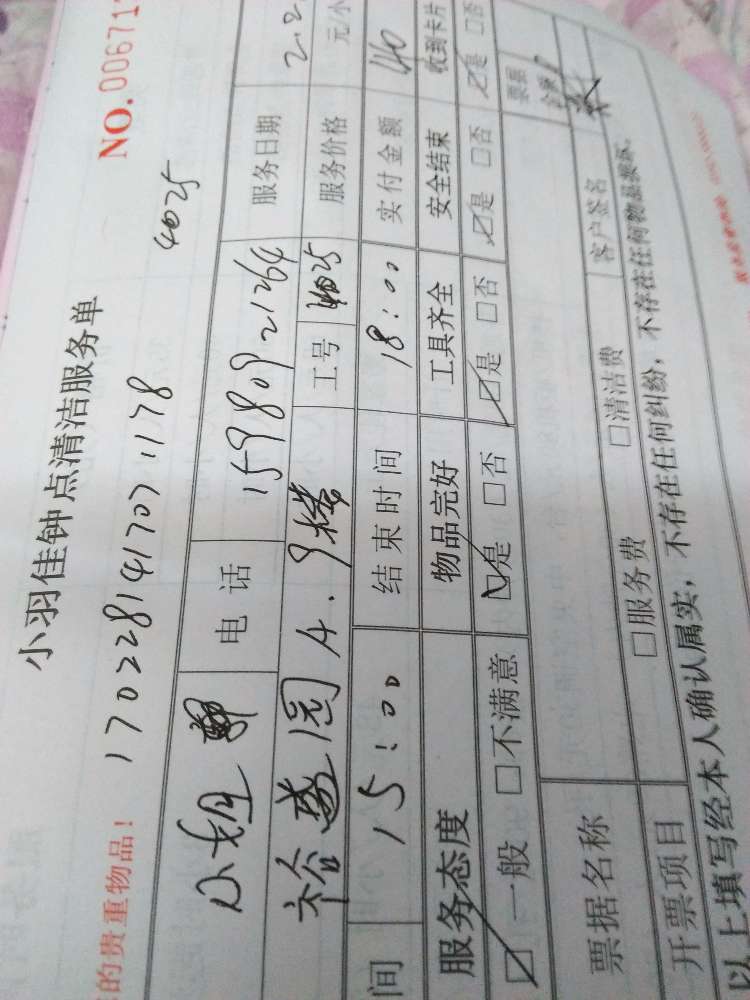 小羽佳钟点清洁服务单
的贵重物品！ 1702281417071178 4025 NO.00671
小姐 电话 15980921264 服务日期 2.2
裕盛园A.9楼 工号 4025 服务价格 元/小
间 15:00 结束时间 18:00 实付金额 140
服务态度 物品完好 工具齐全 安全结束 收到卡片
☑一般 □不满意 ☑是 □否 ☑是 □否 ☑是 □否 ☑是 □否
票据名称 票据
开票项目 □服务费 □清洁费 客户签名
以上填写经本人确认属实，不存在任何纠纷，不存在任何物品损坏。